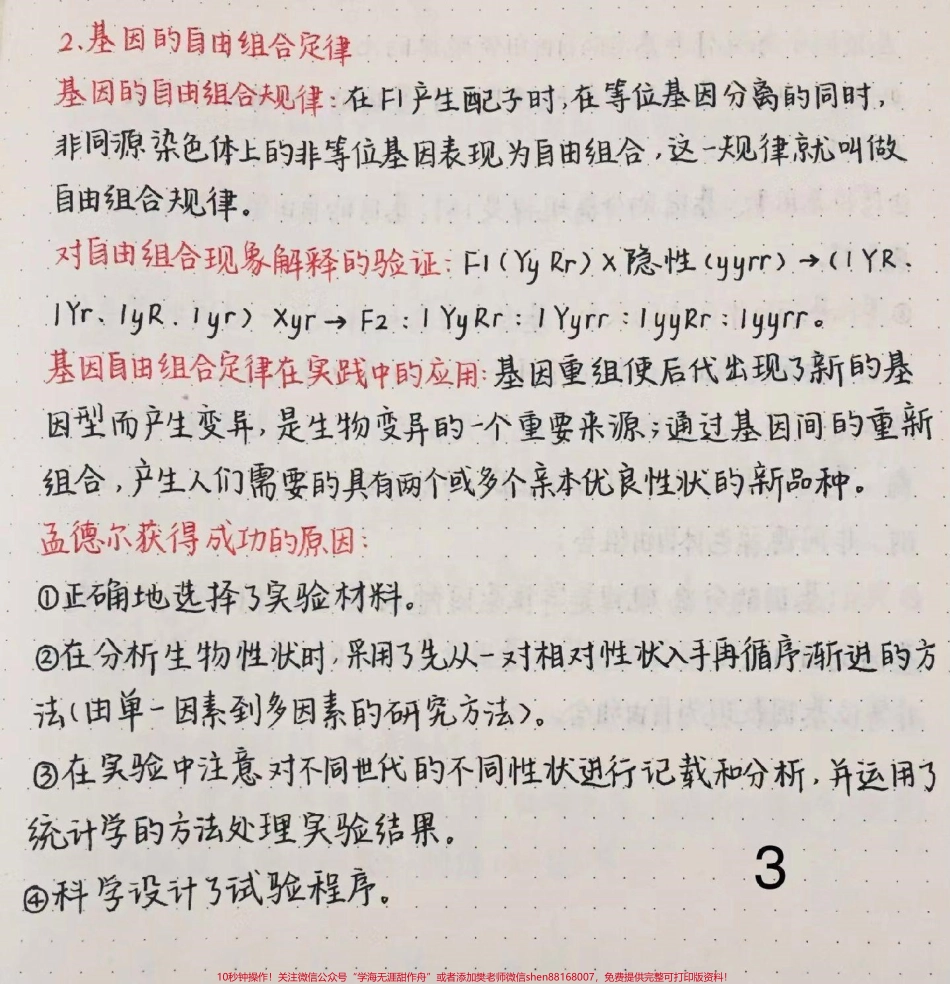 2.基因的自由组合定律
基因的自由组合规律:在F1产生配子时,在等位基因分离的同时,
非同源染色体上的非等位基因表现为自由组合,这一规律就叫做
自由组合规律。
对自由组合现象解释的验证:F1(YyRr)×隐性(yyrr)→(1YR、
1Yr、1yR、1yr)×yr→F2:1YyRr:1Yyrr:1yyRr:1yyrr。
基因自由组合定律在实践中的应用:基因重组使后代出现了新的基
因型而产生变异,是生物变异的一个重要来源;通过基因间的重新
组合,产生人们需要的具有两个或多个亲本优良性状的新品种。
孟德尔获得成功的原因:
①正确地选择了实验材料。
②在分析生物性状时,采用了先从一对相对性状入手再循序渐进的方
法(由单一因素到多因素的研究方法)。
③在实验中注意对不同世代的不同性状进行记载和分析,并运用了
统计学的方法处理实验结果。
④科学设计了试验程序。
3
10秒钟操作!关注微信公众号“学海无涯甜作舟”或者添加樊老师微信shen88168007,免费提供完整可打印版资料!